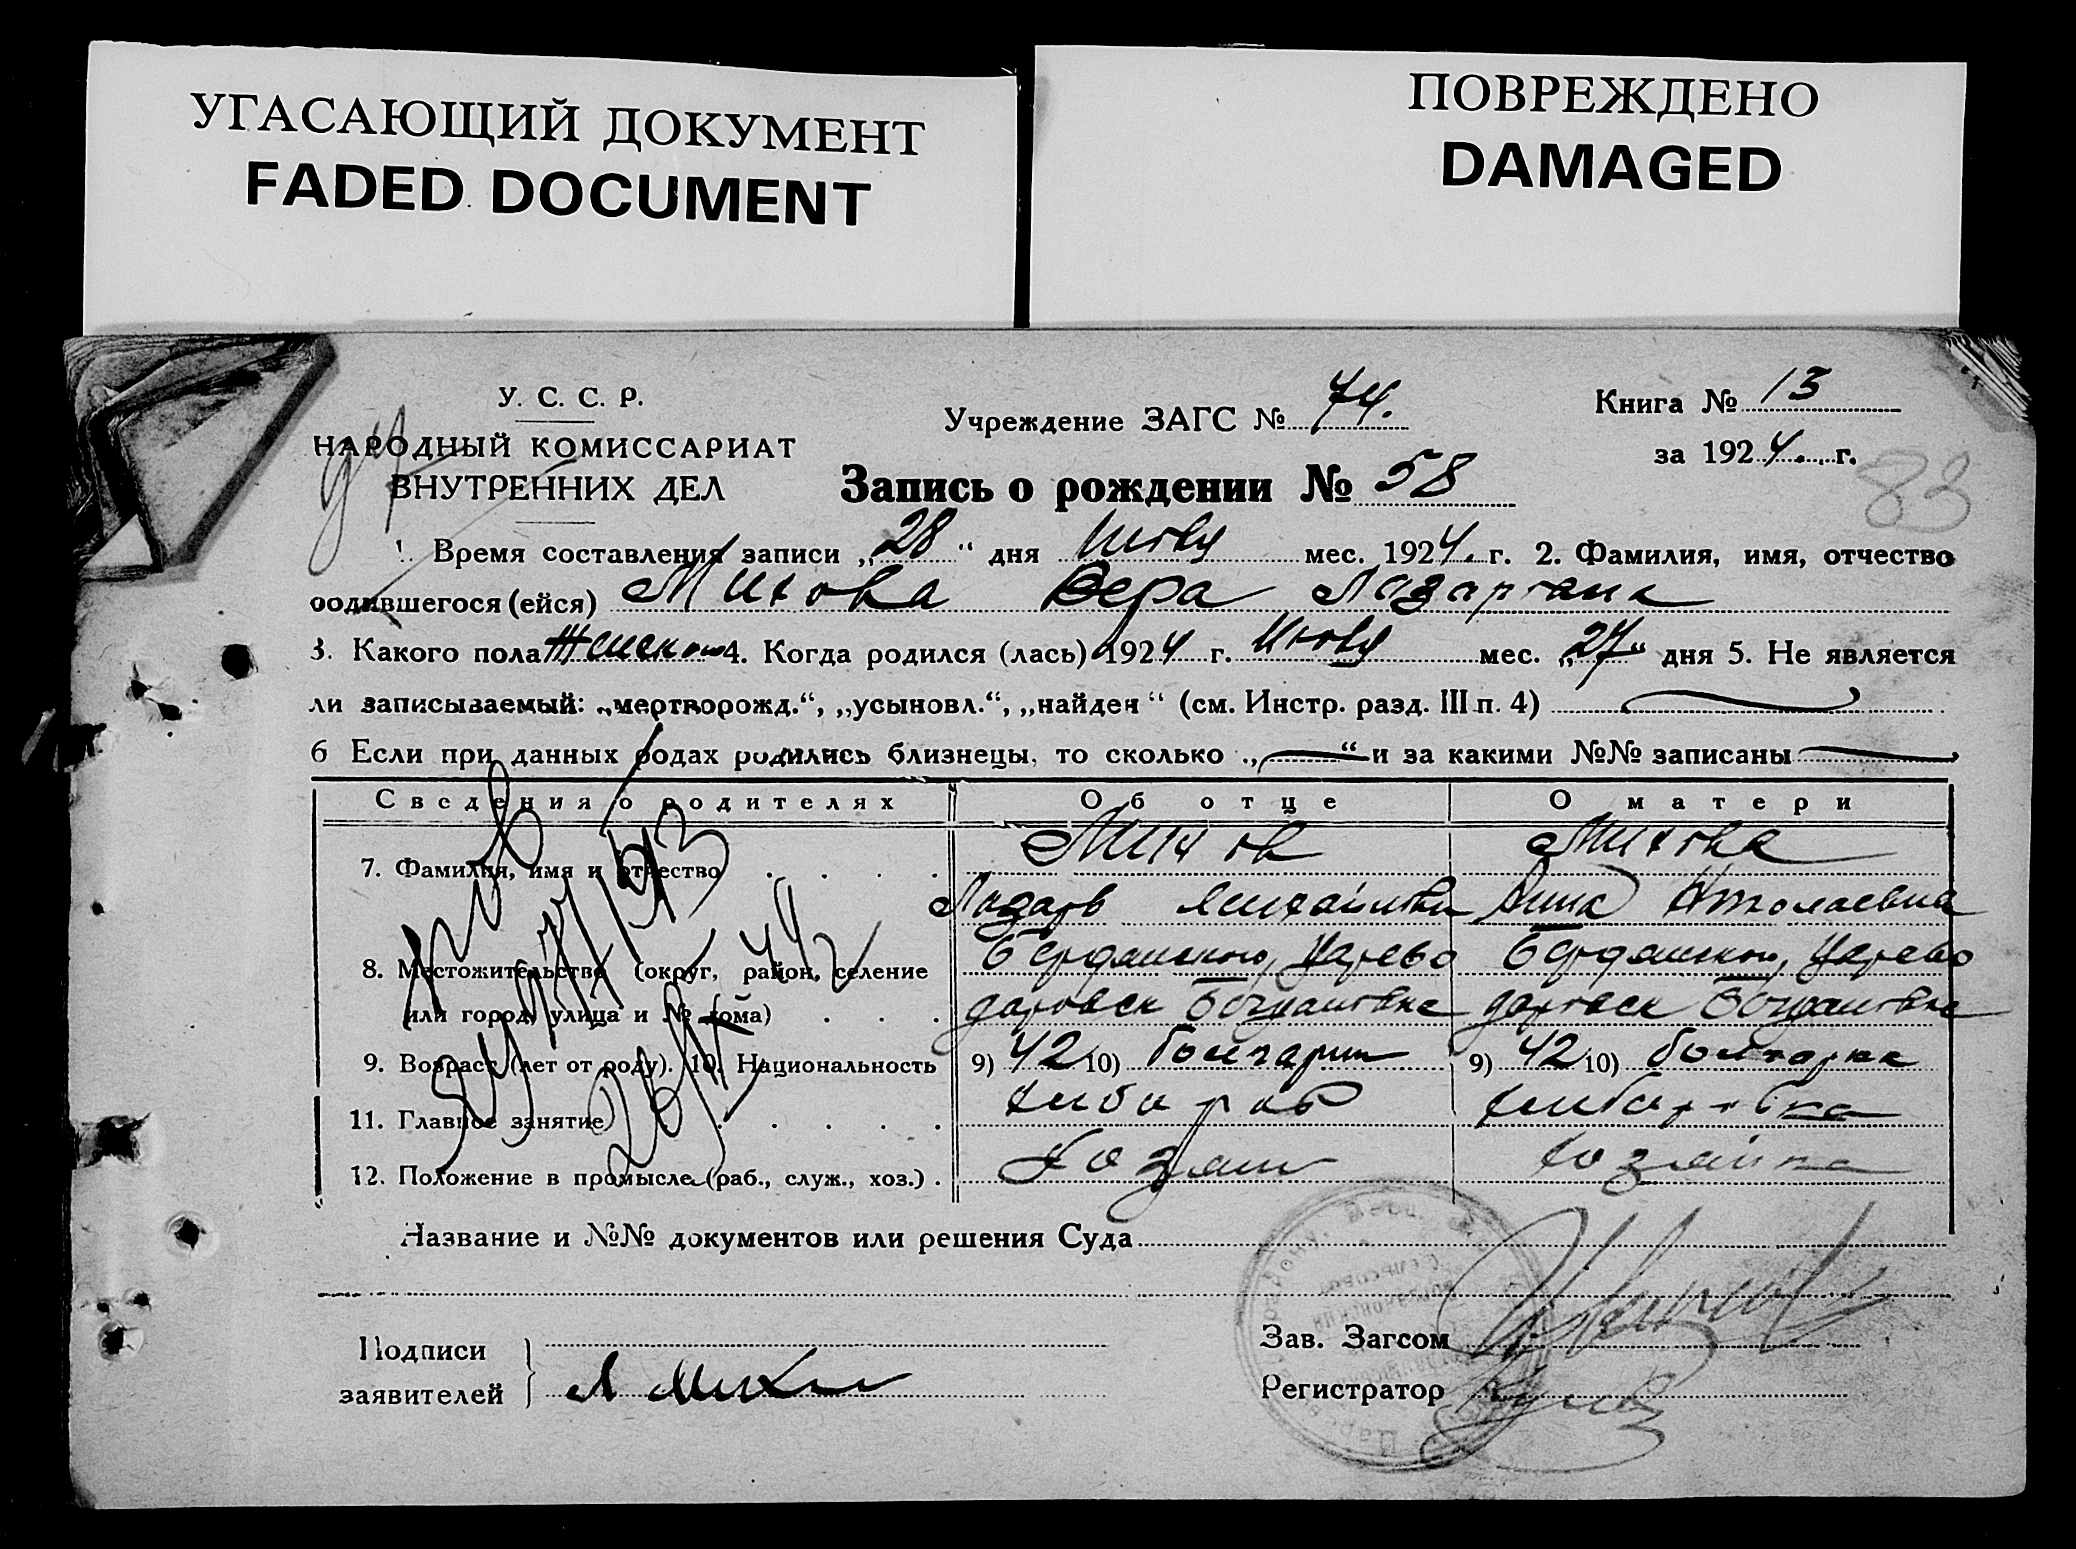 УГАСАЮЩИЙ ДОКУМЕНТ
FADED DOCUMENT
ПОВРЕЖДЕНО
DAMAGED
У. С. С. Р.
НАРОДНЫЙ КОМИССАРИАТ
ВНУТРЕННИХ ДЕЛ
Учреждение ЗАГС № 74.
Книга № 13
за 1924 г.
83
Запись о рождении № 58
1. Время составления записи „28“ дня Июля мес. 1924 г. 2. Фамилия, имя, отчество
родившегося (ейся) Михова Вера Лазаровна
3. Какого пола Женского 4. Когда родился (лась) 1924 г. Июля мес. „27“ дня 5. Не является
ли записываемый: „мертворожд.“, „усыновл.“, „найден“ (см. Инстр. разд. III п. 4)
6 Если при данных родах родились близнецы, то сколько „—“ и за какими №№ записаны —
Сведения о родителях Об отце О матери
7. Фамилия, имя и отчество Михов Михова
Лазарь Михайлович Анна Николаевна
8. Местожительство (округ, район, селение Бердянского, Царево Бердянского, Царево
или город, улица и № дома) даровск Богдановка даровск Богдановка
9. Возраст (лет от роду). 10. Национальность 9) 42 10) болгарин 9) 42 10) болгарка
11. Главное занятие хлебороб хлеборобка
12. Положение в промысле (раб., служ., хоз.) Хозяин хозяйка
Название и №№ документов или решения Суда
Подписи
заявителей Л Михов
Зав. Загсом
Регистратор